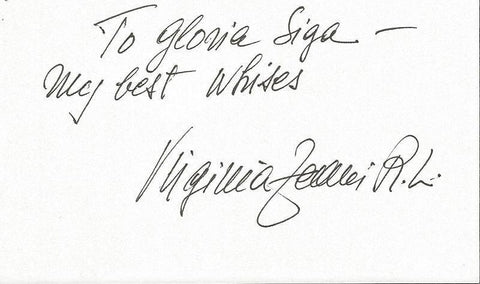 To Gloria Siga —
My best Whises
Virginia Zeani R.L.